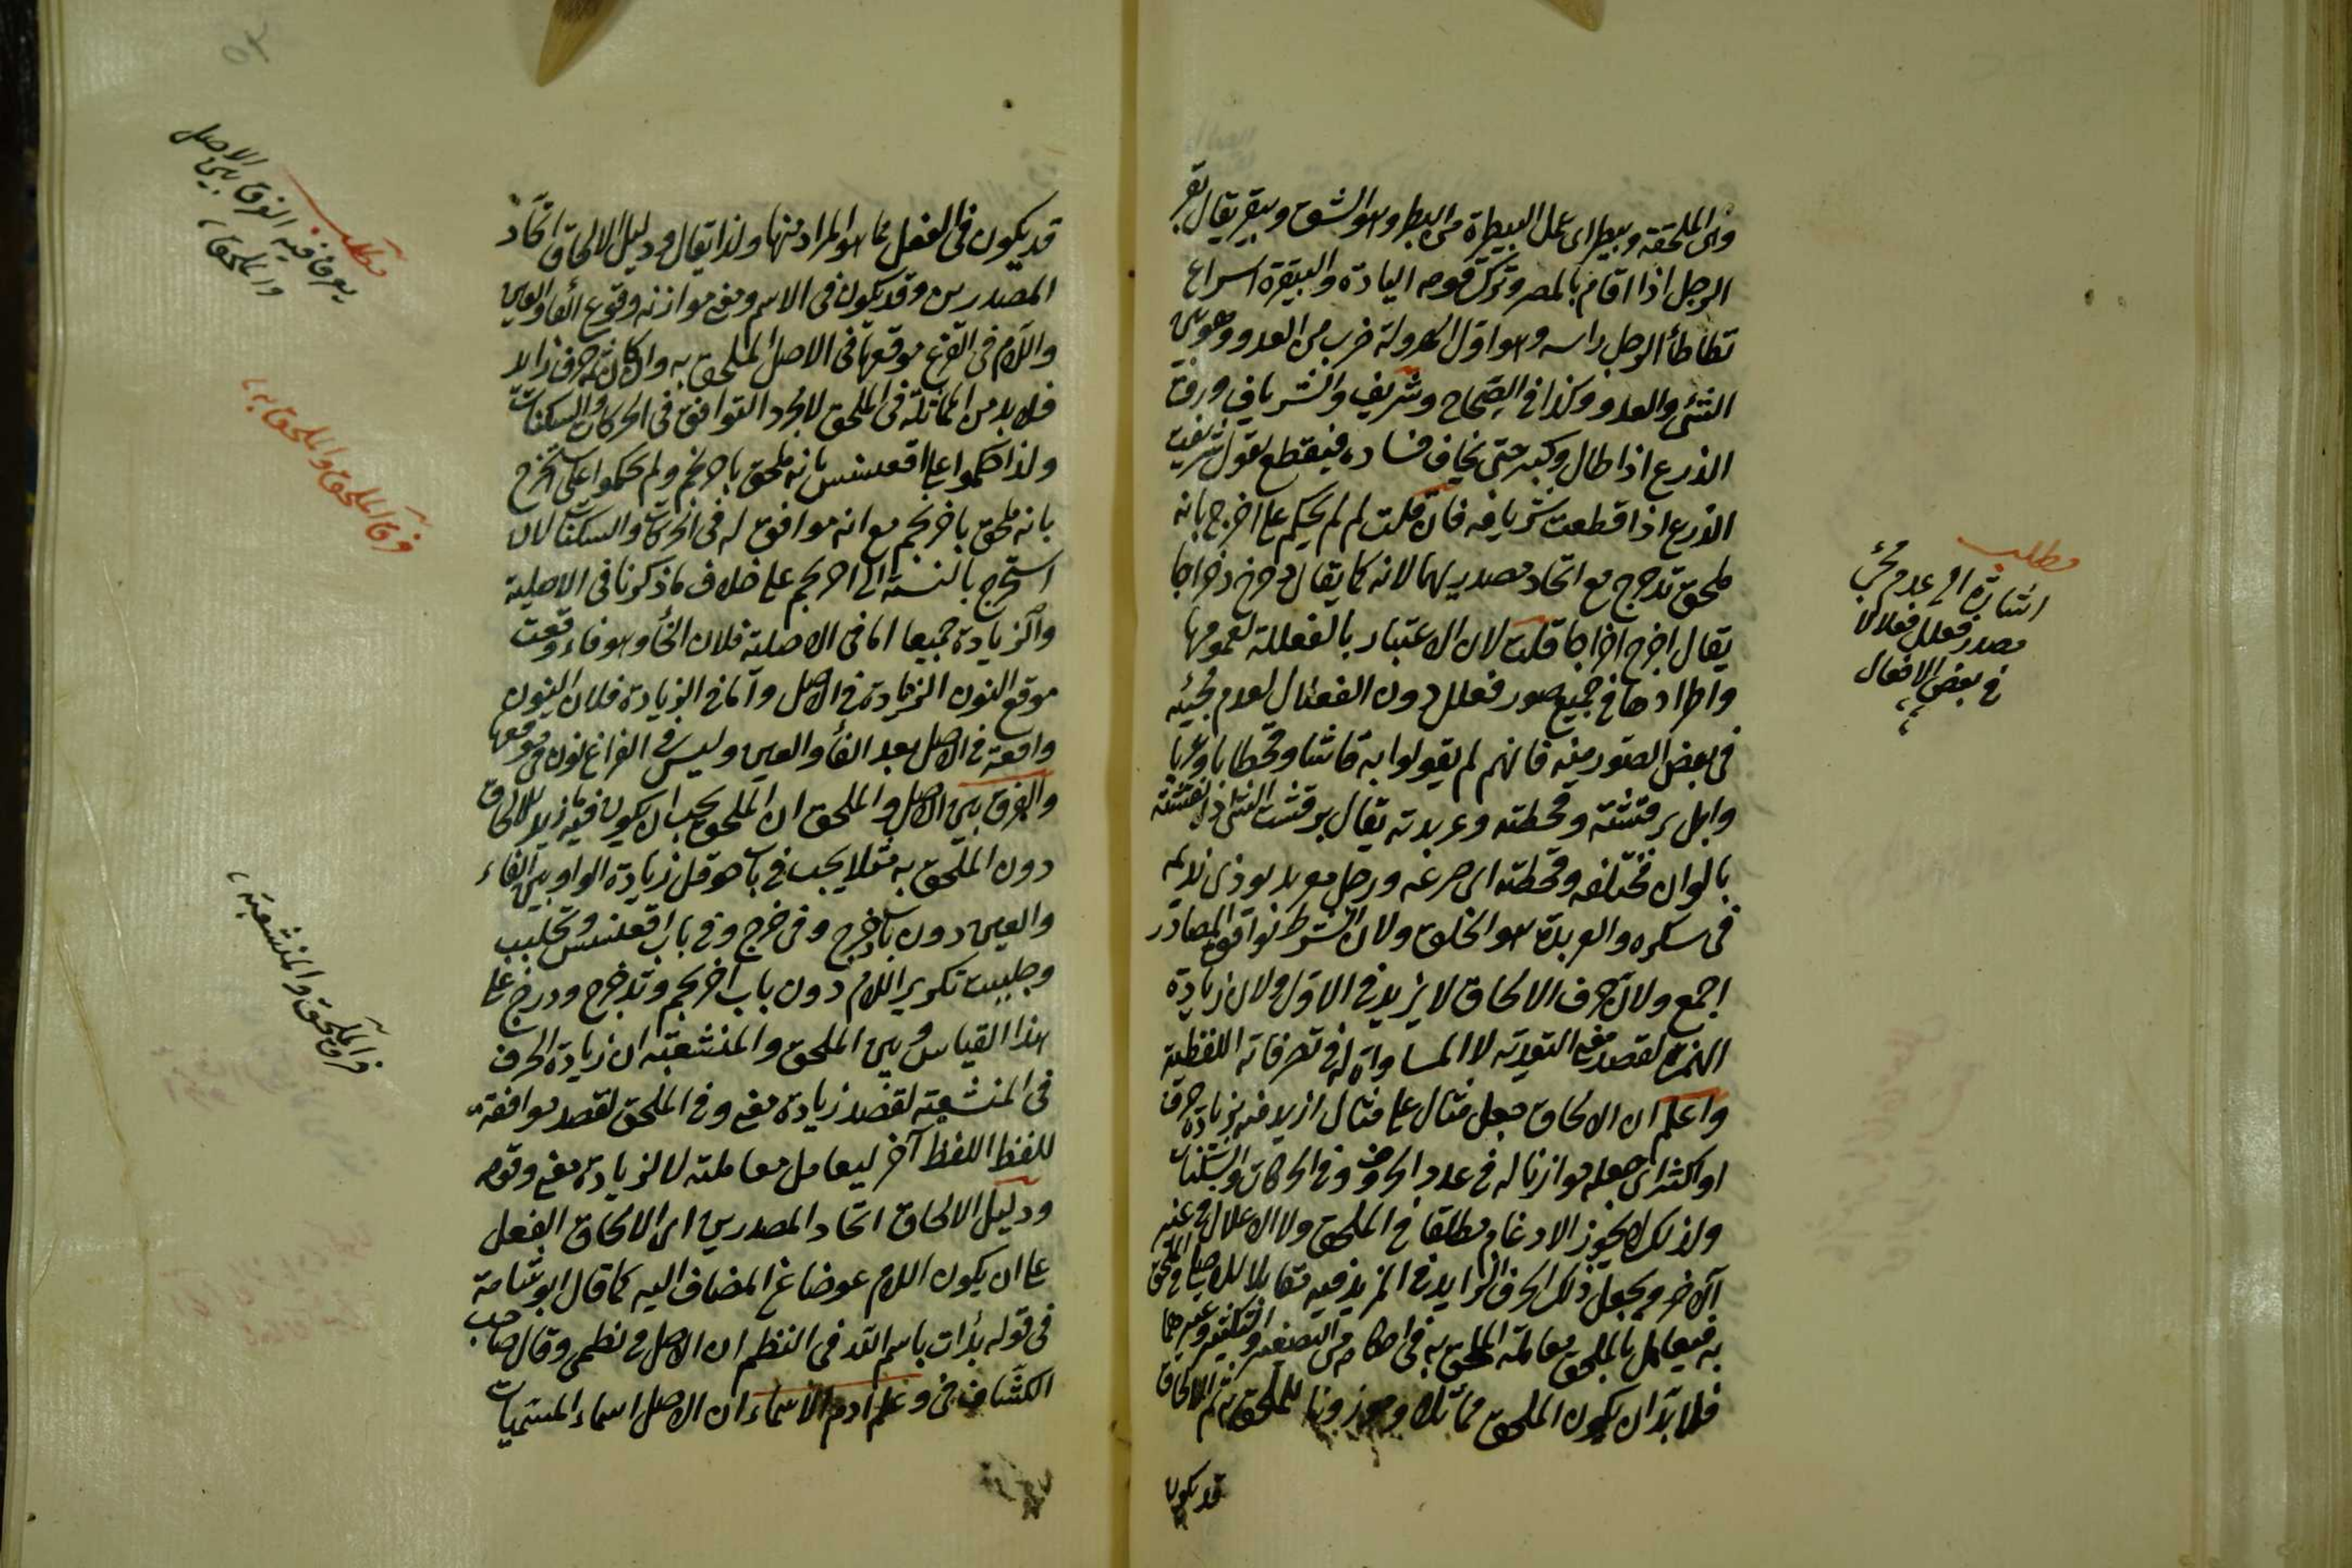 وفى الملحقة وبيطر اى عمل البيطرة من البطر وهو الشق وبيقر يقال بقر
الرجل اذا اقام بالمصر وترك قومه البادة والبيقرة اسراع
تطأطأ الرجل راسه وهو اول الهرولة ضرب من العدو وهو بين
المشى والعدو وكذا فى الصحاح وشريف والشرياف ورق
الذرع اذا طال وكبر حتى يخاف فساده فيقطع يقول شريفت
الذرع اذا قطعت شريافه فان قلت لم لم يحكم على اخرج بانه
ملحق تدحرج مع اتحاد مصدريهما لانه كما يقال دحرج دحراجا
يقال اخرج اخراجا قلت لان الاعتبار بالفعللة لعمومها
واطرادها فى جميع صور فعلل دون الفعلال لعدم مجيئه
فى بعض الصور منه فانهم لم يقولوا برقاشا وقحطابا وعربابا
وابل برقشته وقحطته وعربدته يقال برقشت الشئ اذا نقشته
بالوان مختلفه وقحطته اى صرعه ورجل معربد يوذى نديمه
فى سكره والعربدة سوء الخلق ولان الشرط توافق المصادر
اجمع ولان حرف الالحاق لا يزيد فى الاول ولان زيادة
الهمزة لقصد معنى التعدية لا المساواة له فى تصرفاته اللفظية
واعلم ان الالحاق جعل مثال على مثال ازيد منه بزيادة حرف
او اكثر اى جعله موازنا له فى عدد الحروف وفى الحركات والسكنات
ولذلك لا يجوز الادغام مطلقا فى الملحق ولا الاعلال فى غير
الآخر ويجعل ذلك الحرف الزايد فى المزيد فيه مقابلا للاصلى فى الملحق
به فيعامل بالملحق معاملة الملحق به فى احكامه من التصغير والتكسير وغيرهما
فلا بد ان يكون الملحق مماثلا وموزونا للملحق به ثم الالحاق
قد يكون
مطلب
اشارة الى عدم مجئ
مصدر فعلل فعلالا
فى بعض الافعال
قد يكون فى الفعل مما هو المراد منها ولذا يقال ودليل الالحاق اتحاد
المصدرين وقد يكون فى الاسم ومعنى موازنته وقوع الفا والعين
واللام فى الفرع موقعها فى الاصل الملحق به وان كان ثمه حرف زائد
فلا بد من المماثلة فى الملحق لا مجرد التوافق فى الحركات والسكنات
ولذا حكموا على اقعنسس بانه ملحق باحرنجم ولم يحكموا على استخرج
بانه ملحق باحرنجم مع انه موافق له فى الحركات والسكنات لان
استخرج بالنسبة الى احرنجم على خلاف ما ذكرنا فى الاصلية
والزيادة جميعا اما فى الاصلية فلان الخأ وهو فاء وقعت
موقع النون الزائدة فى الاصل واما فى الزيادة فلان النون
واقعة فى الاصل بعد الفأ والعين وليس فى الفرع نون فى موقعها
والفرق بين الاصل والملحق ان الملحق يجب ان يكون فيه ما زيد للالحاق
دون الملحق به مثلا يجب فى باب حوقل زيادة الواو بين الفاء
والعين دون باب دحرج وفى باب اقعنسس وتجلبب
وجلبب تكرير اللام دون باب احرنجم وتدحرج ودحرج على
هذا القياس وبين الملحق والمنشعبة ان زيادة الحرف
فى المنشعبة لقصد زيادة معنى وفى الملحق لقصد موافقة
للفظ اللفظ آخر ليعامل معاملته لا لزيادة معنى وقوله
ودليل الالحاق اتحاد المصدرين اى الالحاق الفعل
على ان يكون اللام عوضا عن المضاف اليه كما قال ابو شامة
فى قوله بدأت باسم الله فى النظم ان الاصل فى نظمى وقال صاحب
الكشاف فى وعلم ادم الاسماء ان الاصل اسماء المسميات
مطلب
يعرف فيه الفرق بين الاصل
والملحق
فرق الملحق والملحق به
فرق الملحق والمنشعبة